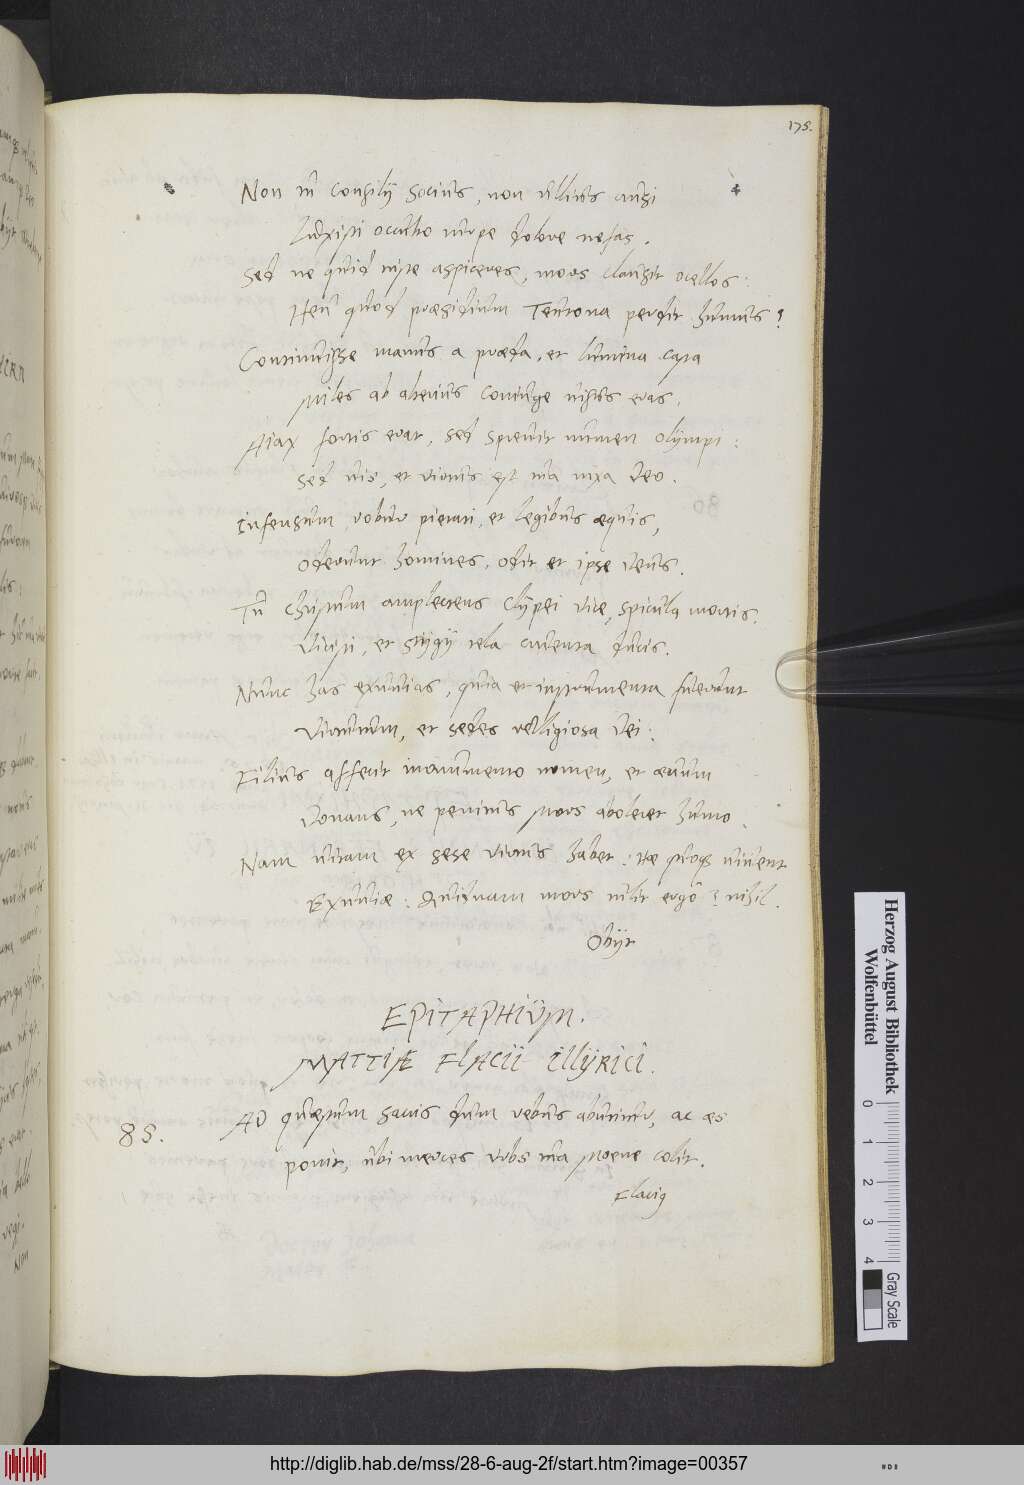 175.
Non tñ consilij socius, non ullius ausi
Luxisti occulto turpe dolore nefas.
Sed ne quid triste aspiceres, mors clausit ocellos:
Heu quod præsidium Teutona perdit humus?
Continuisse manus a præda, et lumina casta
Miles ab alterius coniuge uisus eras.
Aiax fortis erat, sed spreuit numen olympi:
Sed uis, et uirtus est tua nixa Deo.
Infensum robur pietati, et legibus æquis,
Oderunt homines, odit et ipse Deus.
Tu Christum amplectens clypei vice, spicula mortis
Vicisti, et stygij tela cruenta ducis.
Nunc has exuuias, quia et instrumenta fuerunt
Virtutum, et sedes relligiosa Dei:
Filius asserit monumento nomen, et æuum
Donans, ne penitus Mors aboleret humo.
Nam uitam ex sese uirtus habet: Hæ quoq3 uiuent
Exuuiæ: Quidnam mors tulit ergo? nihil.
Obijt
EPITAPHIUM.
MATTIÆ FLACII ILLYRICI.
85.
AD quæstum sacris dum rebus abutitur, ac æs
ponit, ubi merces urbs tua Moene colit.
Flacig
Herzog August Bibliothek
Wolfenbüttel
0 1 2 3 4
Gray Scale
http://diglib.hab.de/mss/28-6-aug-2f/start.htm?image=00357